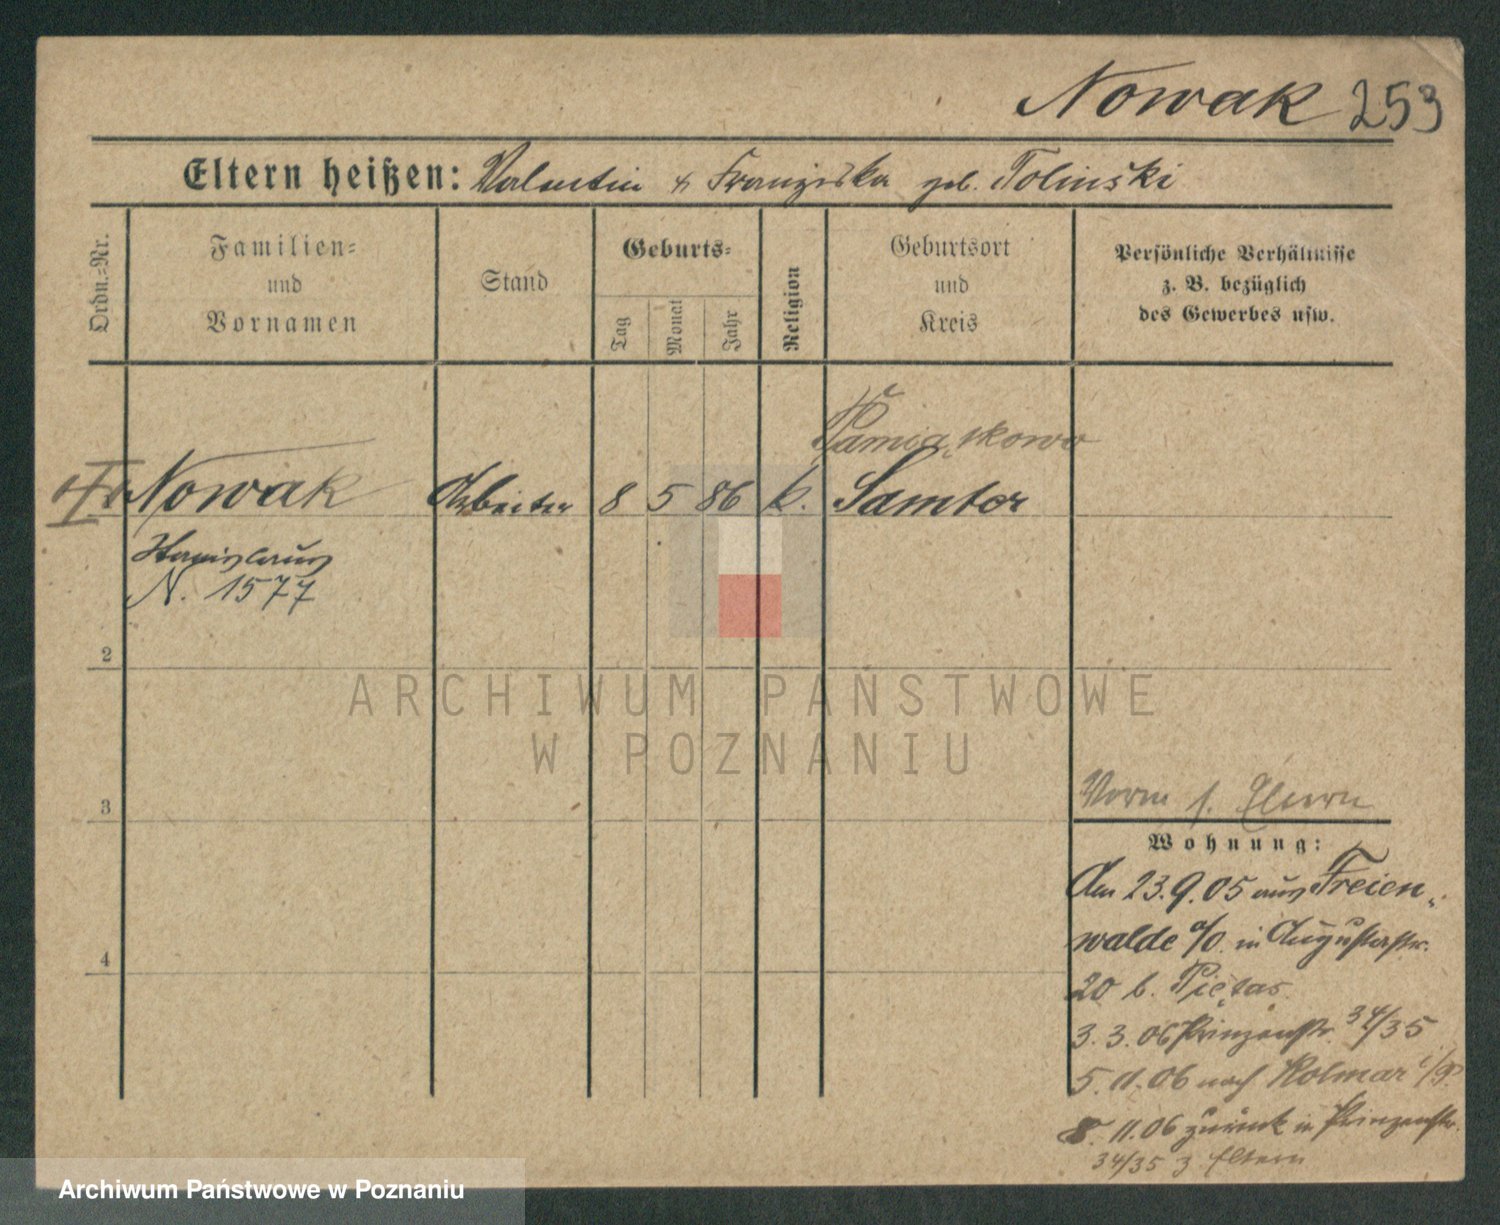 Nowak 253
Eltern heißen: Valentin & Franziska geb. Tolinski
Ordn.-Nr.
Familien- und Vornamen
Stand
Geburts-
Tag
Monat
Jahr
Religion
Geburtsort und Kreis
Persönliche Verhältnisse z. B. bezüglich des Gewerbes usw.
Pamiątkowo
Nowak Arbeiter 8 5 86 k. Samter
Stanislaus
N. 1577
2
3
4
ARCHIWUM PAŃSTWOWE
W POZNANIU
Vorm s. Eltern
Wohnung:
Am 23.9.05 aus Freien„
walde a/O. in Augustastr.
20 b. Piętas.
3.3.06 Prinzenstr. 34/35
5.11.06 nach Kolmar i/P.
8.11.06 zurück in Prinzenstr.
34/35 z Eltern
Archiwum Państwowe w Poznaniu